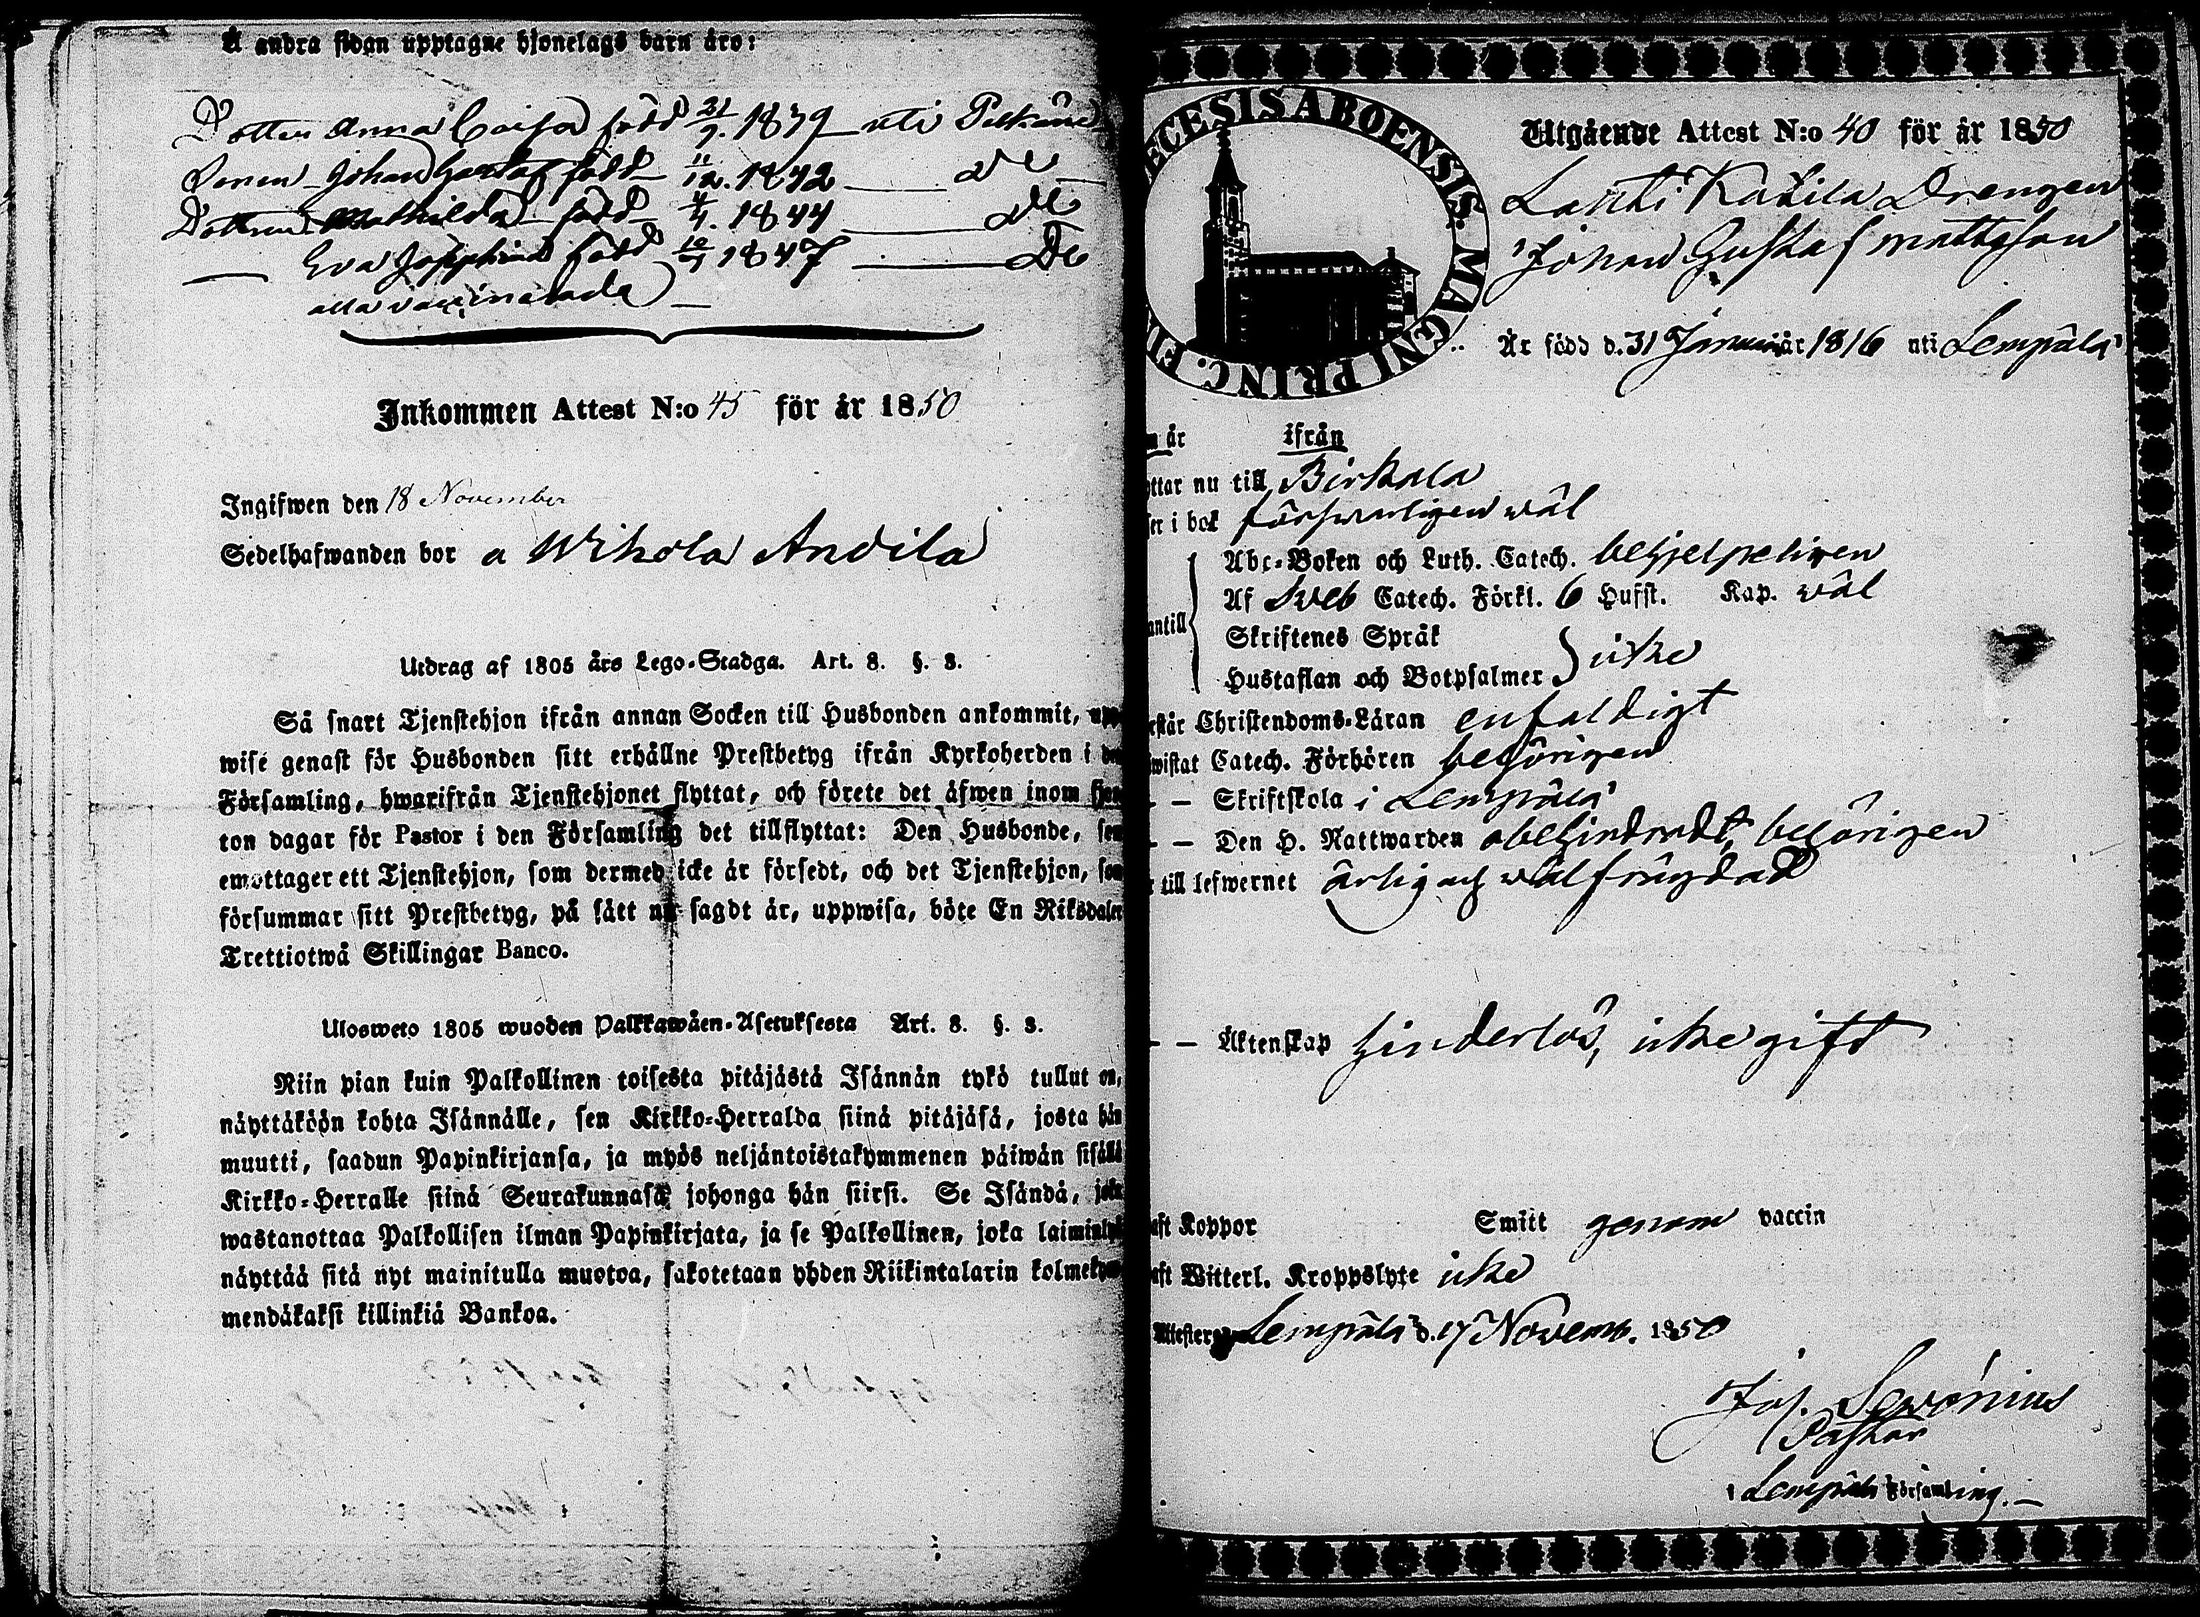 Å andra sidan upptagne hjonelags barn äro:
Dotter Anna Caisa född 21/9. 1839 uti Pelkäne
Sonen Johan Gustaf född 11/12. 1842 de
Dottren Mathilda född 4/4. 1844 de
Eva Josephina född 10/7 1847 de
alla vaccinerade
Inkommen Attest N:o 45 för år 1850
Ingifwen den 18 November
Sedelhafwanden bor a Wihola Andila
Utdrag af 1805 års Lego-Stadga. Art. 8. §. 8.
Så snart Tjenstehjon ifrån annan Socken till Husbonden ankommit, upp-
wise genast för Husbonden sitt erhållne Prestbetyg ifrån Kyrkoherden i den
Församling, hwarifrån Tjenstehjonet flyttat, och förete det äfwen inom fjor-
ton dagar för Pastor i den Församling det tillflyttat: Den Husbonde, som
emottager ett Tjenstehjon, som dermed icke är försedt, och det Tjenstehjon, som
försummar sitt Prestbetyg, på sätt nu sagdt är, uppwisa, böte En Riksdaler
Trettiotwå Skillingar Banco.
Ulosweto 1805 wuoden Palkkawäen-Asetuksesta Art. 8. §. 8.
Niin pian kuin Palkollinen toisesta pitäjästä Isännän tykö tullut on,
näyttäköön kohta Isännälle, sen Kirkko-Herralda siinä pitäjäsä, josta hän
muutti, saadun Papinkirjansa, ja myös neljäntoistakymmenen päiwän sisällä
Kirkko-Herralle siinä Seurakunnasa johonga hän siirsi. Se Isändä, joka
wastanottaa Palkollisen ilman Papinkirjata, ja se Palkollinen, joka laiminlyö
näyttää sitä nyt mainitulla muotoa, sakotetaan yhden Riikintalarin kolmekym-
mendäkaksi killinkiä Bankoa.
ECESIS ABOENSIS. MAGNI PRINC. FI
Utgående Attest N:o 40 för år 1850
Lahti Katila Drengen
Johan Gustaf Mattsson
Är född d. 31 Januari år 1816 uti Lempäla
n år ifrån
yttar nu till Birkala
ser i bok försvarligen wäl
antill
Abc-Boken och Luth. Catech. behjelpeligen
Af Sveb Catech. Förkl. 6 Hufst. Kap. wäl
Skriftenes Språk
Hustaflan och Botpsalmer } icke
rstår Christendoms-Läran enfaldigt
wistat Catech. Förhören behörigen
— — Skriftskola i Lempälä
— — Den H. Nattwarden obehindradt, behörigen
r till lefwernet ärlig och wälfrägdad
— — Äktenskap hinderlös, icke gift
aft Koppor Smitt genom vaccin
aft Witterl. Kroppslyte icke
Attesterar Lempälä d. 17 Novemb. 1850
Jos. Sewonius
Pastor
i Lempälä Församling.